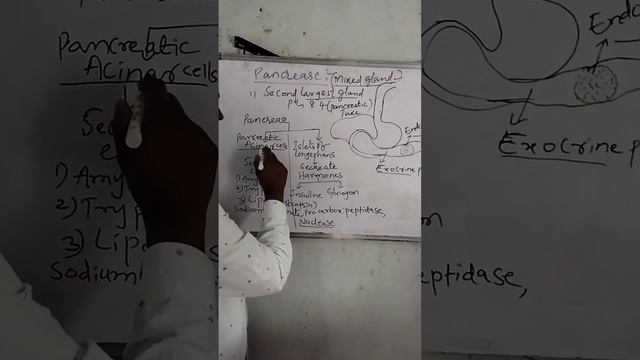 Pancrease :- (Mixed gland)
1) Second largest gland
PH → 8.4 (pancreatic
Juice
Pancrease
Pancreatic
Acinar cells
Islets of
Secreate
Harmones
Insuline Glycogon
1) Amy
2) Tryp
3) Lipa
Sodium
procarboxypeptidase,
Nuclease
Endo
Exocrine p
Pancreatic
Acinar cells
Se
e
1) Amy
2) Tryp
3) Lipa
Sodium
Endo
Exocrine p
gon
peptidase,